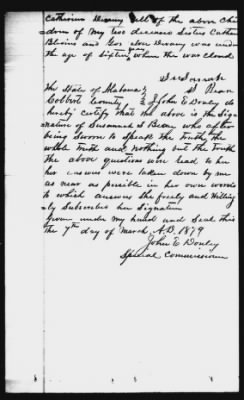 Catherine Devany all of the above chil
dern of My two deceased Sisters Catherine
Blevins and Geo Devany was under
the age of fifteen when the war closed
Susannah
S Bean
The State of Alabama
Colbert County I John E Donley do
hereby certify that the above is the Sig
nature of Susannah S Bean who after
being Sworn to Speak the truth the
whole Truth and nothing but the Truth
The above questions were read to her
her answers were taken down by me
as near as possible in her own words
to which answers she freely and Willing
ly Subscribes her Signature
Given under my hand and Seal this
the 7th day of March A.D. 1879
John E Donley
Special Commissioner